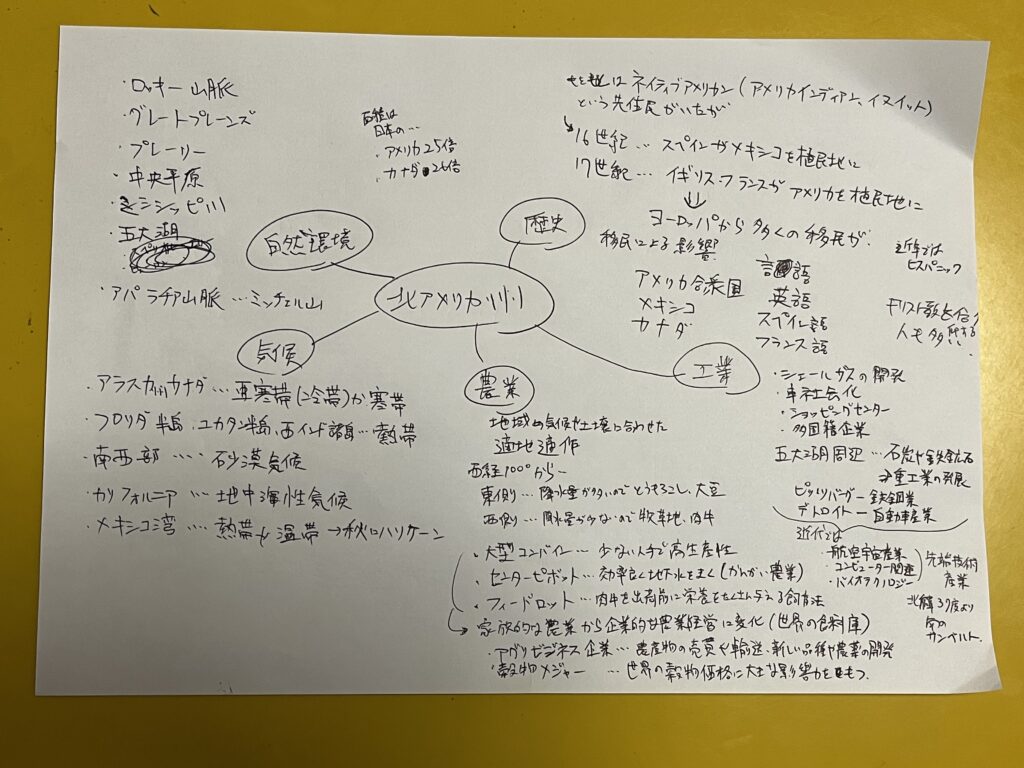 ・ロッキー山脈
・グレートプレーンズ
・プレーリー
・中央平原
・ミシシッピ川
・五大湖
・アパラチア山脈…ミッチェル山
面積は
日本の…
・アメリカ25倍
・カナダ 26倍
自然環境
北アメリカ州
歴史
はネイティブアメリカン(アメリカインディアン、イヌイット)
という先住民がいたが
16世紀…スペインがメキシコを植民地に
17世紀…イギリス・フランスがアメリカを植民地に
⇓
ヨーロッパから多くの移民が
移民による影響
言語
アメリカ合衆国 英語
メキシコ スペイン語
カナダ フランス語
近年では
ヒスパニック
キリスト教を信
仰する
人も多い.
気候
・アラスカ カナダ…亜寒帯(冷帯)か寒帯
・フロリダ半島、ユカタン半島、西インド諸島…熱帯
・南西部……砂漠気候
・カリフォルニア…地中海性気候
・メキシコ湾……熱帯や温帯→秋にハリケーン
農業
地域の気候や土壌に合わせた
適地適作
西経100°から―
東側…降水量が多いのでとうもろこし、大豆
西側…降水量が少ないので牧草地、肉牛
・大型コンバイン…少ない人手で高生産性
・センターピボット…効率良く地下水をまく(かんがい農業)
・フィードロット…肉牛を出荷前に栄養をたくさん与える飼育法
家族的な農業から企業的な農業経営に変化(世界の食料庫)
・アグリビジネス企業…農産物の売買や輸送、新しい品種や農薬の開発
・穀物メジャー…世界の穀物価格に大きな影響力をもつ.
工業
・シェールガスの開発
・車社会化
・ショッピングセンター
・多国籍企業
五大湖周辺…石炭や鉄鉱石
→重工業の発展
ピッツバーグー鉄鋼業
デトロイトー自動車産業
近代では
・航空宇宙産業
・コンピューター関連
・バイオテクノロジー
先端技術
産業
北緯37度より
南の
サンベルト.